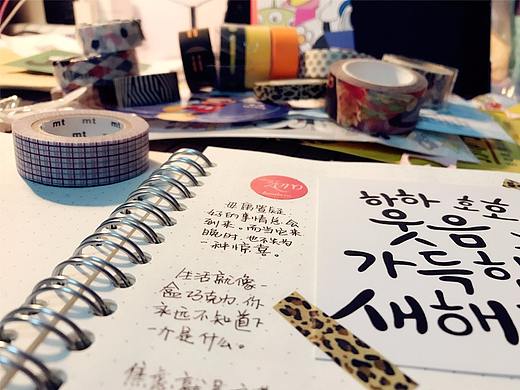 mt mt
毋庸置疑，
好的事情总会
到来。而当它来
晚时，也不失为
一种惊喜。
生活就像一
盒巧克力，你
永远不知道下
一个是什么。
하하 호호
웃음
가득한
새해